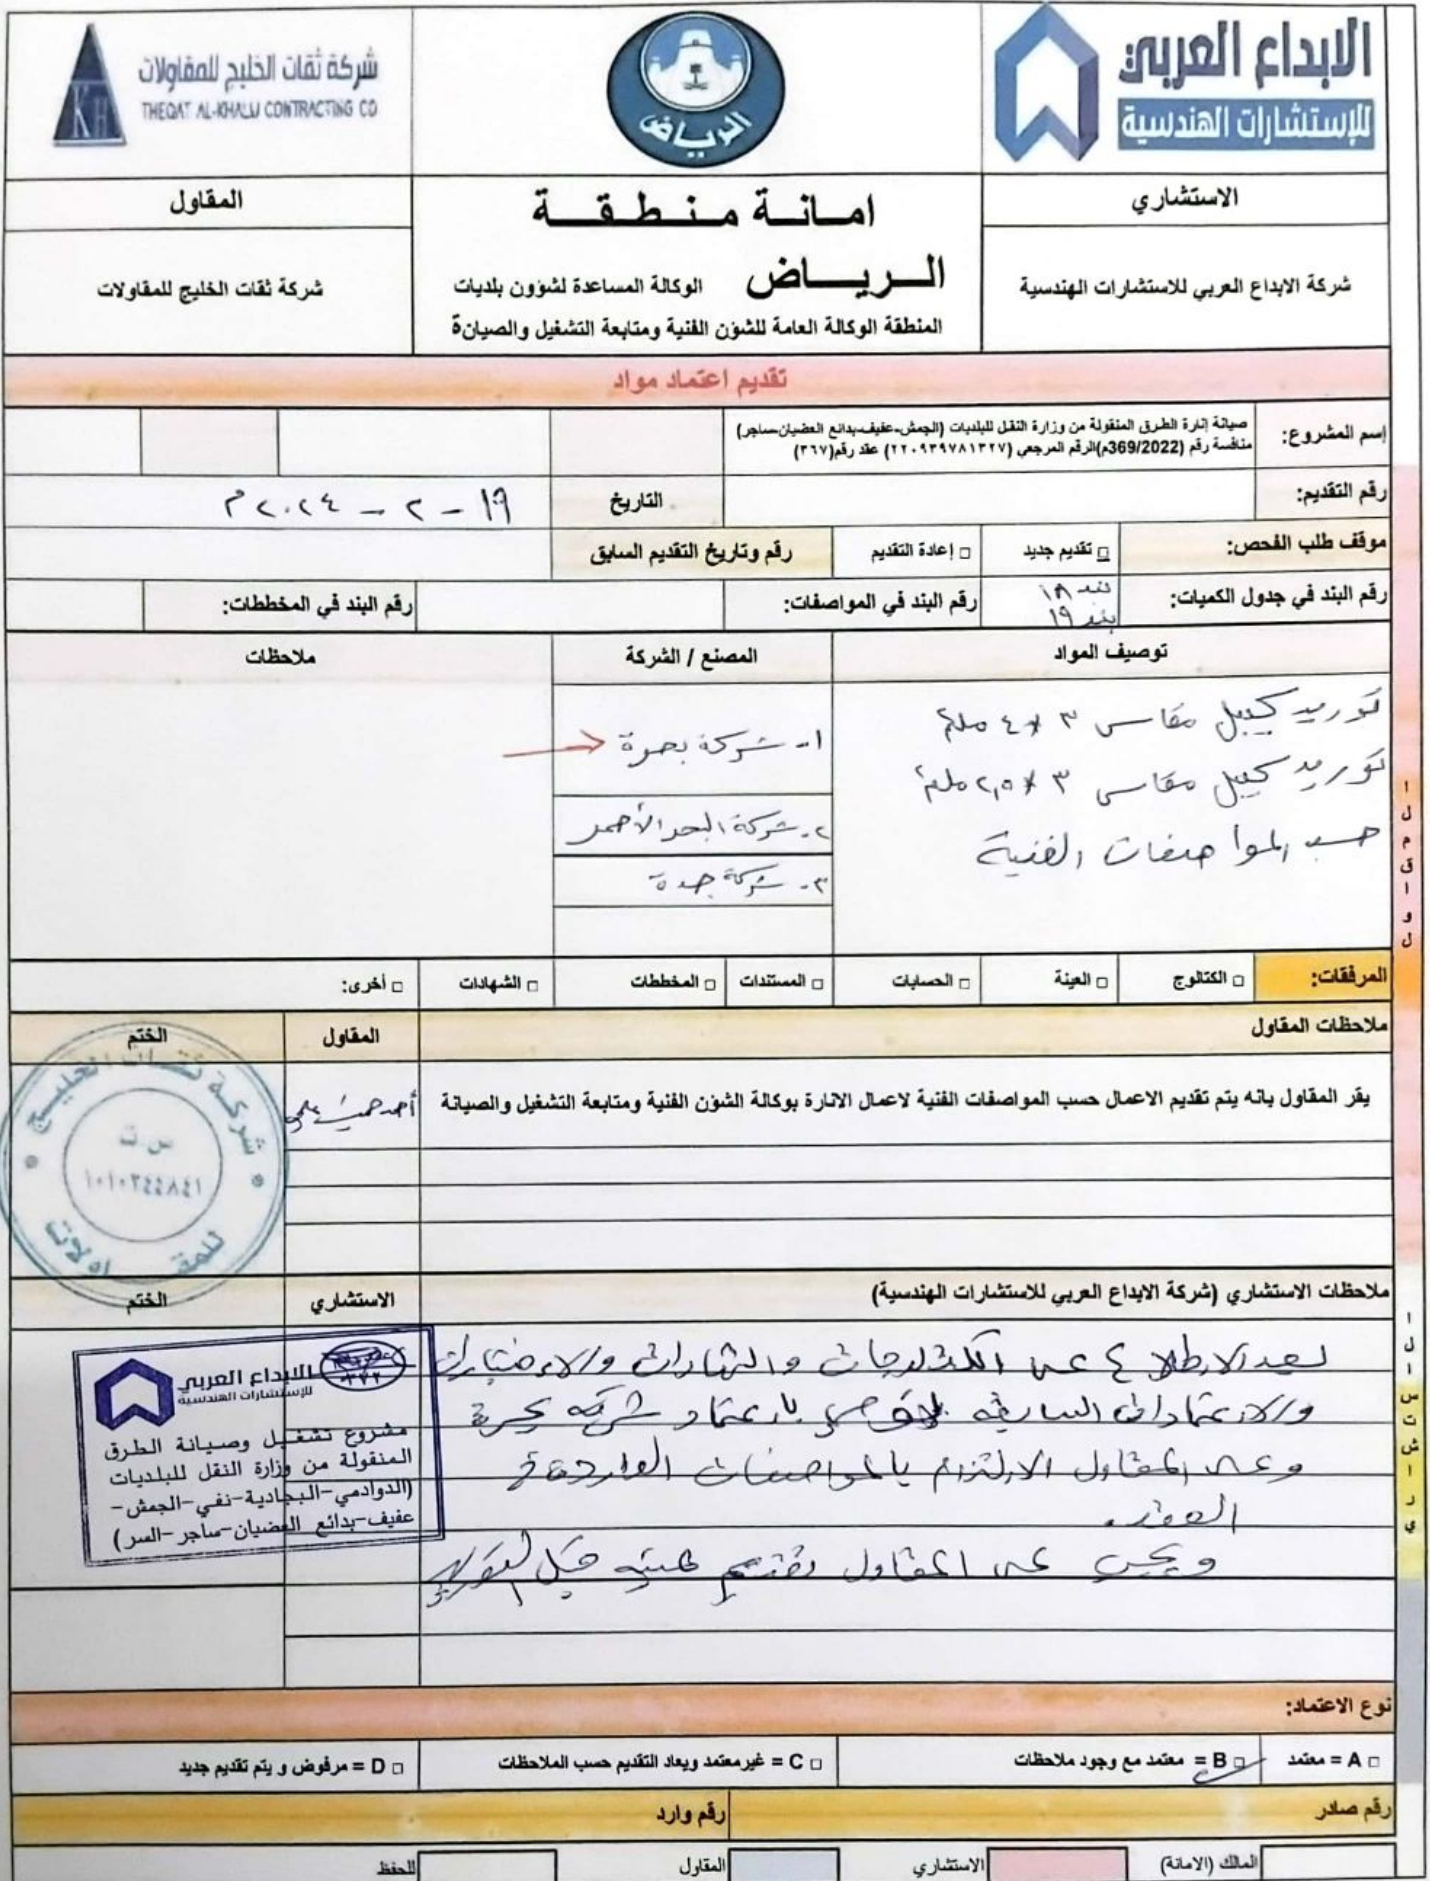 الابداع العربي
للإستشارات الهندسية
الرياض
شركة ثقات الخليج للمقاولات
THEQAT AL-KHALIJ CONTRACTING CO
KH
الاستشاري
امانة منطقة
المقاول
شركة الابداع العربي للاستشارات الهندسية
الرياض الوكالة المساعدة لشؤون بلديات
المنطقة الوكالة العامة للشؤن الفنية ومتابعة التشغيل والصيانة
شركة ثقات الخليج للمقاولات
تقديم اعتماد مواد
إسم المشروع:
صيانة إنارة الطرق المنقولة من وزارة النقل للبلديات (الجمش-عفيف-بدائع العضيان-ساجر)
منافسة رقم (369/2022م)الرقم المرجعي (٢٢٠٩٣٩٧٨١٣٢٧) عقد رقم(٣٦٧)
رقم التقديم:
التاريخ
١٩ - ٢ - ٢٠٢٤ م
موقف طلب الفحص:
تقديم جديد
إعادة التقديم
رقم وتاريخ التقديم السابق
رقم البند في جدول الكميات:
بند ١٨
بند ١٩
رقم البند في المواصفات:
رقم البند في المخططات:
توصيف المواد
المصنع / الشركة
ملاحظات
توريد كيبل مقاس ٣ * ٤ ملم
توريد كيبل مقاس ٣ * ٢,٥ ملم
حسب المواصفات الفنية
١- شركة بحرة
٢- شركة البحر الأحمر
٣- شركة جدة
المقاول
المرفقات:
الكتالوج
العينة
الحسابات
المستندات
المخططات
الشهادات
أخرى:
ملاحظات المقاول
المقاول
الختم
يقر المقاول بانه يتم تقديم الاعمال حسب المواصفات الفنية لاعمال الانارة بوكالة الشؤن الفنية ومتابعة التشغيل والصيانة
أحمد حسين علي
شركة ثقات الخليج
س.ت
١٠١٠٢٤٤٨٤١
للمقاولات
ملاحظات الاستشاري (شركة الابداع العربي للاستشارات الهندسية)
الاستشاري
الختم
بعد الاطلاع على الكتالوجات والشهادات والاختبارات
والاعتمادات السابقة نوصي باعتماد شركة بحرة
وعلى المقاول الالتزام بالمواصفات الواردة في
العقد.
ويجب على المقاول تقديم عينة قبل التوريد
الابداع العربي
للإستشارات الهندسية
مشروع تشغيل وصيانة الطرق
المنقولة من وزارة النقل للبلديات
(الدوادمي-البجادية-نفي-الجمش-
عفيف-بدائع العضيان-ساجر-السر)
الاستشاري
نوع الاعتماد:
A = معتمد
B = معتمد مع وجود ملاحظات
C = غيرمعتمد ويعاد التقديم حسب الملاحظات
D = مرفوض و يتم تقديم جديد
رقم صادر
رقم وارد
المالك (الامانة)
الاستشاري
المقاول
للحفظ